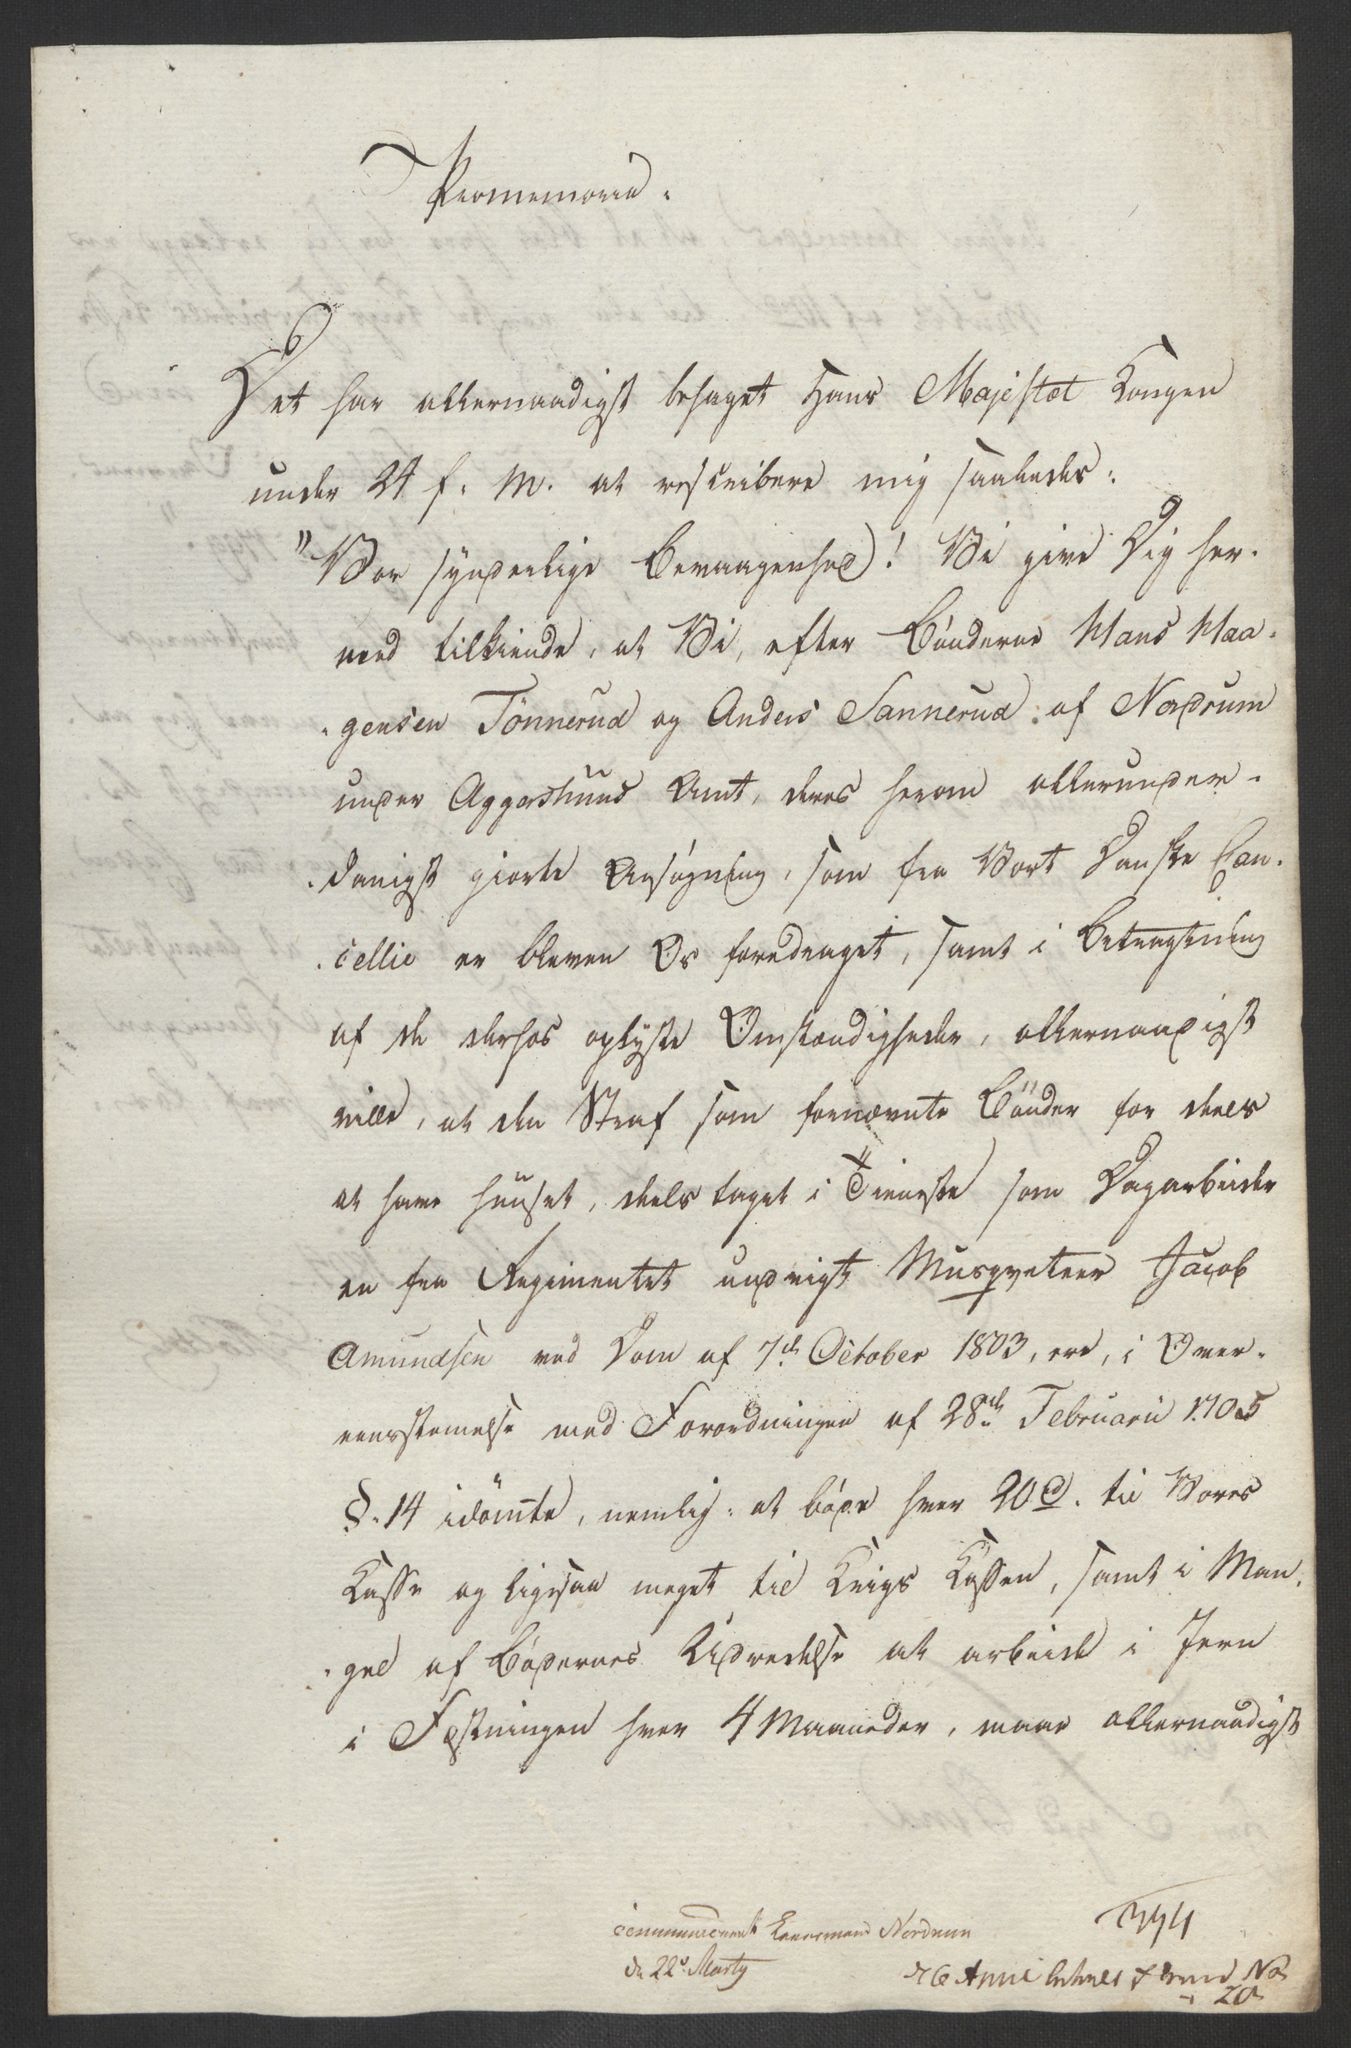 Promemoria.
Det har allernaadigst behaget Hans Majestæt Kongen
under 24 f. M. at rescribere mig saaledes:
"Vor synderlige Bevaagenhed! Vi give Dig her-
med tilkiende, at Vi, efter Bönderne Hans Haa-
-gensen Tönnerud og Anders Sannerud af Nordrum
under Aggershuus Amt, deres herom allerunder-
-danigst giorte Ansøgning, som fra Vort Danske Can-
-cellie er bleven Os foredraget, samt i Betragtning
af de derhos oplyste Omstændigheder, allernaadigst
ville, at den Straf som fornævnte Bönder for deels
at have huuset, deels taget i Tieneste som Dagarbeider
en fra Regimentet undvigt Musqveteer Jacob
Amundsen ved Dom af 7de October 1803, ere, i Over-
eensstemelse med Forordningen af 28de Februarii 1705
§. 14 idömte, nemlig: at böde hver 20 rd. til Vores
Kasse og ligesaa meget til Krigs Kassen, samt i Man-
-gel af Bödernes Udredelse at arbeide i Jern
i Fæstningen hver 4 Maaneder, maae allernaadigst
communiceret Lensmand Nordrum
de 22de Marty
374
No
20